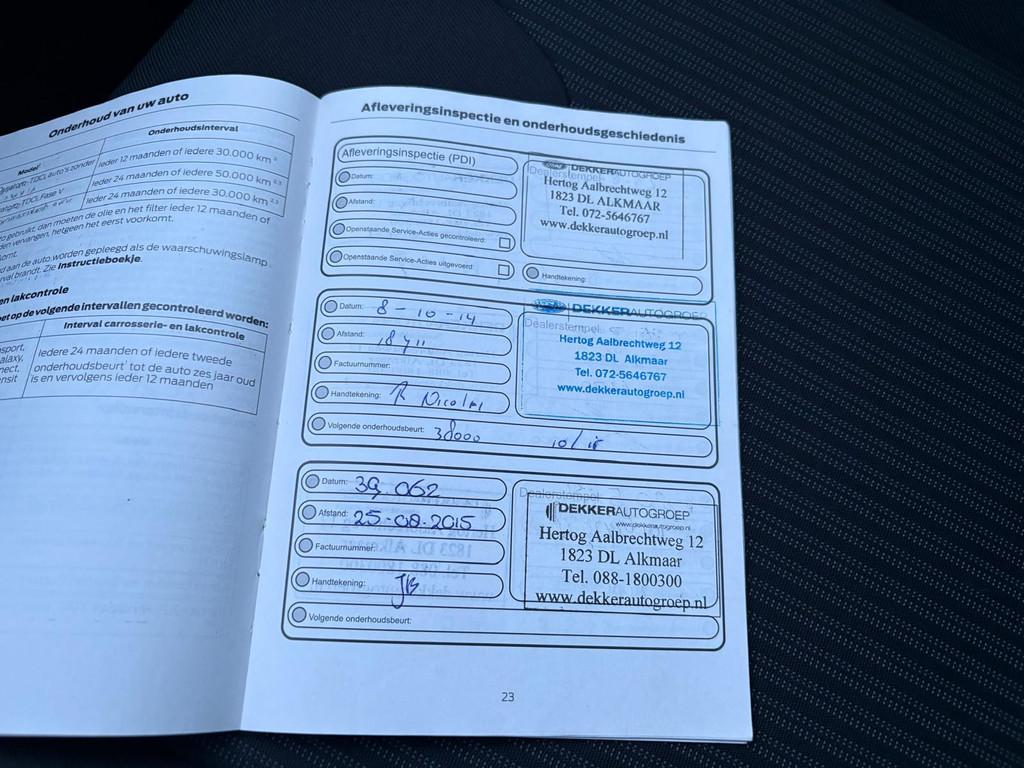 Onderhoud van uw auto
Onderhoudsinterval
Model¹
TDCi, auto's zonder
Ieder 12 maanden of iedere 30.000 km
Ieder 24 maanden of iedere 50.000 km
TDCi Fase V
Ieder 24 maanden of iedere 30.000 km
gebruikt, dan moeten de olie en het filter ieder 12 maanden of
vervangen, hetgeen het eerst voorkomt.
aan de auto worden gepleegd als de waarschuwingslamp
brandt. Zie Instructieboekje.
en lakcontrole
op de volgende intervallen gecontroleerd worden:
Interval carrosserie- en lakcontrole
Iedere 24 maanden of iedere tweede
onderhoudsbeurt¹ tot de auto zes jaar oud
is en vervolgens ieder 12 maanden
Afleveringsinspectie en onderhoudsgeschiedenis
Afleveringsinspectie (PDI)
Datum:
Afstand:
Openstaande Service-Acties gecontroleerd:
Openstaande Service-Acties uitgevoerd:
Dealerstempel
DEKKERAUTOGROEP
Hertog Aalbrechtweg 12
1823 DL ALKMAAR
Tel. 072-5646767
www.dekkerautogroep.nl
Handtekening:
Datum: 8-10-14
Afstand:
Factuurnummer:
Handtekening: R Nicolai
Volgende onderhoudsbeurt: 38000
Dealerstempel
DEKKERAUTOGROEP
Hertog Aalbrechtweg 12
1823 DL Alkmaar
Tel. 072-5646767
www.dekkerautogroep.nl
Datum: 39.062
Afstand: 25-08-2015
Factuurnummer:
Handtekening: JB
Volgende onderhoudsbeurt:
Dealerstempel
DEKKERAUTOGROEP
www.dekkerautogroep.nl
Hertog Aalbrechtweg 12
1823 DL Alkmaar
Tel. 088-1800300
www.dekkerautogroep.nl
23